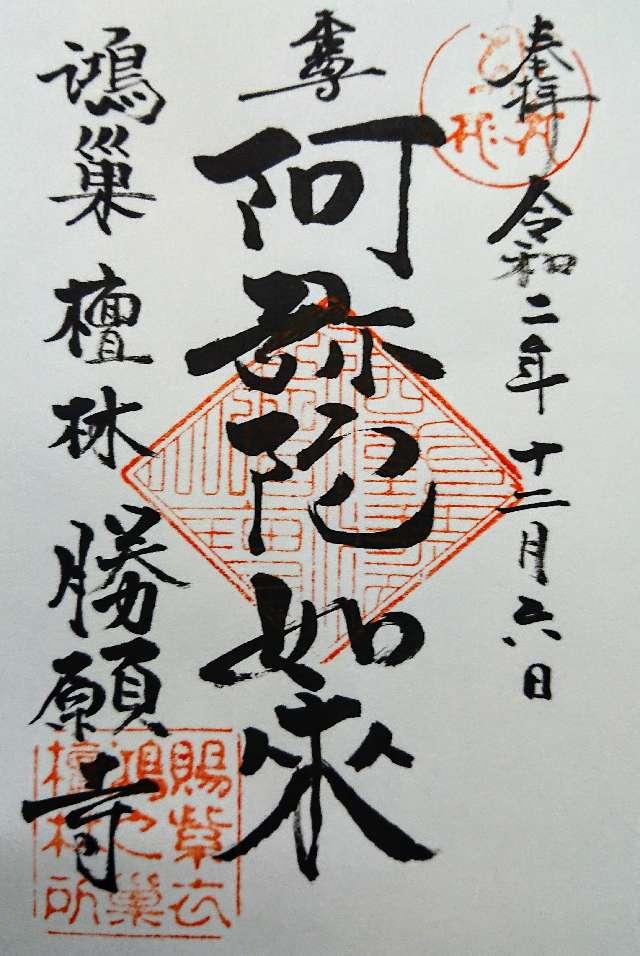 奉拝
令和二年十二月六日
尊
阿弥陀如来
鴻巣 檀林 勝願寺
賜紫衣
鴻之巣
檀林所